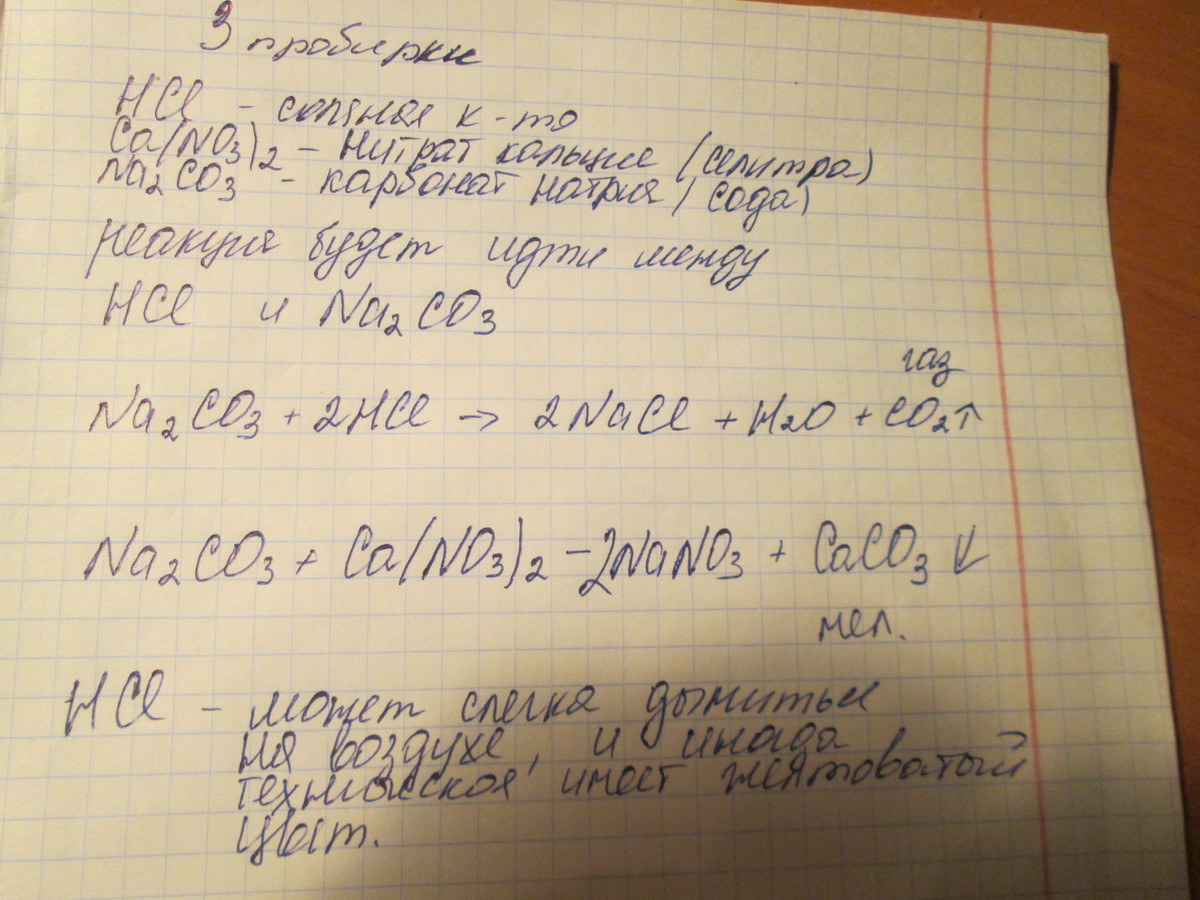 3 пробирки
HCl - соляная к-та
Ca(NO3)2 - нитрат кальция (селитра)
Na2CO3 - карбонат натрия (сода)
реакция будет идти между
HCl и Na2CO3
газ
Na2CO3 + 2HCl → 2NaCl + H2O + CO2↑
Na2CO3 + Ca(NO3)2 - 2NaNO3 + CaCO3 ↓
мел.
HCl - может слегка дымиться
на воздухе, и иногда
техническая имеет желтоватый
цвет.